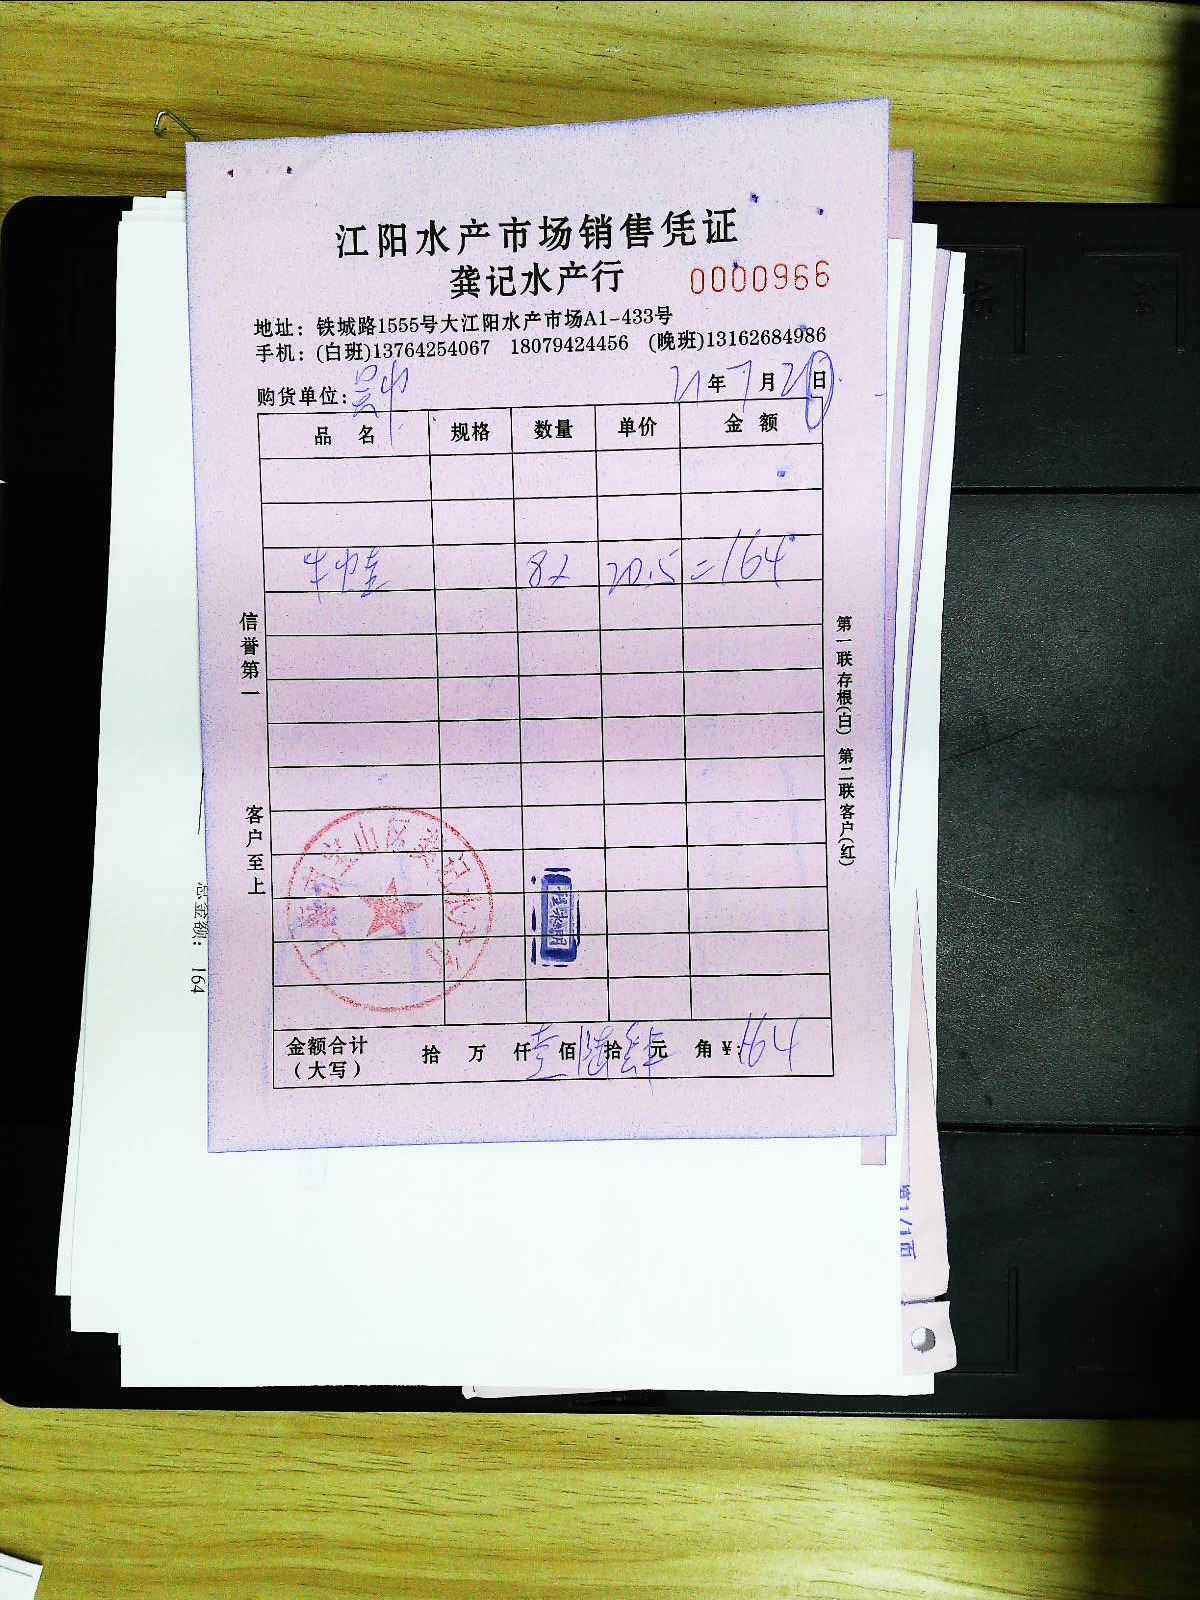 江阳水产市场销售凭证
龚记水产行 0000966
地址：铁城路1555号大江阳水产市场A1-433号
手机：(白班)13764254067 18079424456 (晚班)13162684986
购货单位： 21年7月20日
品名 规格 数量 单价 金额
牛蛙 8斤 20.5 = 164
信誉第一
客户至上
第一联存根(白) 第二联客户(红)
金额合计 拾 万 仟 壹佰陆拾肆元 角 ¥:164
(大写)
总金额： 164
第1/1页